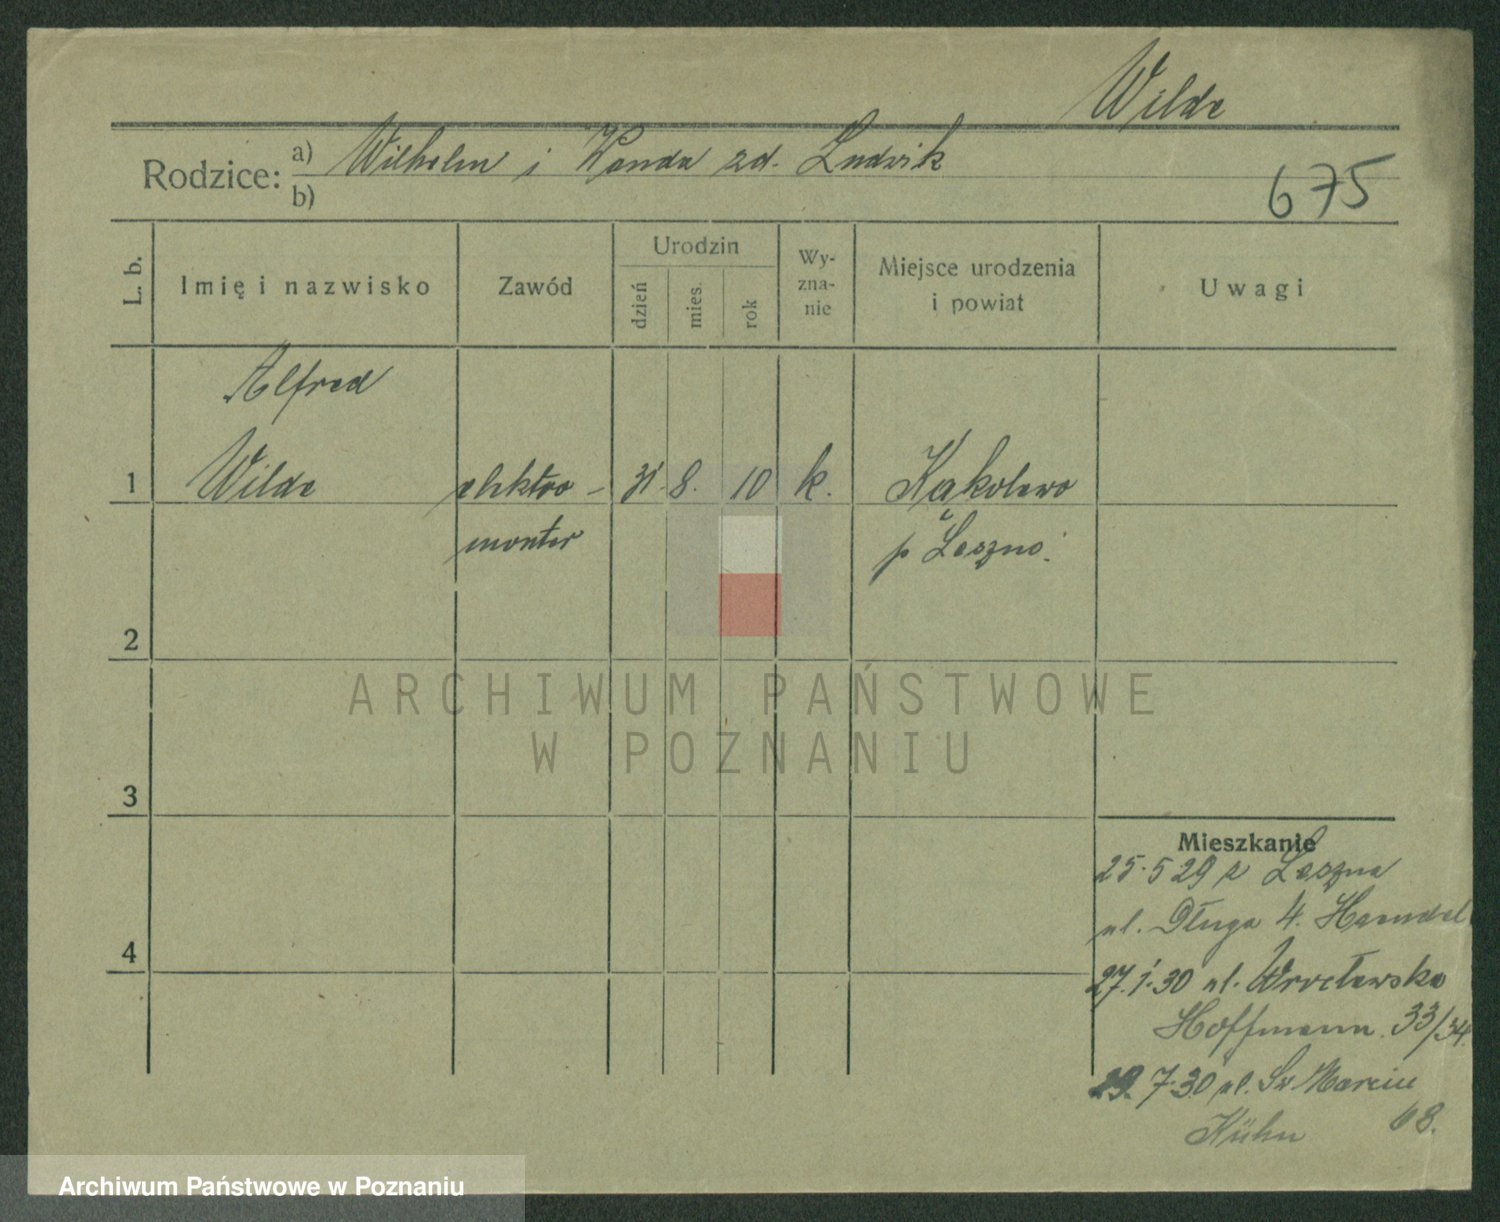 Wilde
Rodzice: a) Wilhelm i Wanda zd. Ludwik
b)
675
L. b.
Imię i nazwisko
Zawód
Urodzin
dzień
mies.
rok
Wy-
zna-
nie
Miejsce urodzenia
i powiat
Uwagi
Alfred
1 Wilde elektro- 31. 8. 10 k. Kąkolewo
monter p Leszno.
2
ARCHIWUM PAŃSTWOWE
W POZNANIU
3
Mieszkanie
25.5 29 z Leszna
ul. Długa 4.
4
27.1.30 ul. Wrocławska
Hoffmann. 33/34.
29.7.30 ul. Św Marcin
Kühn 68.
Archiwum Państwowe w Poznaniu